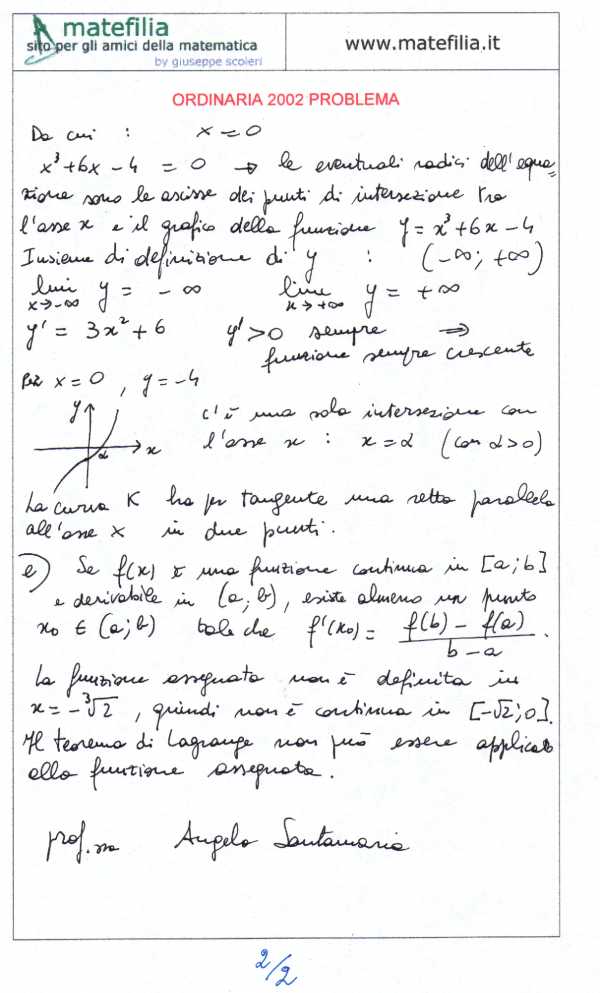 matefilia
sito per gli amici della matematica
by giuseppe scoleri
www.matefilia.it
ORDINARIA 2002 PROBLEMA
Da cui : x = 0
x³+6x-4 = 0 → le eventuali radici dell'equa=
zione sono le ascisse dei punti di intersezione tra
l'asse x e il grafico della funzione y = x³+6x-4
Insieme di definizione di y : (-∞; +∞)
lim x→-∞ y = -∞ lim x→+∞ y = +∞
y' = 3x²+6 y'>0 sempre ⇒
funzione sempre crescente
per x=0 , y=-4
y x α
c'è una sola intersezione con
l'asse x : x=α (con α>0)
La curva K ha per tangente una retta parallela
all'asse x in due punti.
e) Se f(x) è una funzione continua in [a;b]
e derivabile in (a;b), esiste almeno un punto
x₀ ∈ (a;b) tale che f'(x₀) = (f(b) - f(a))/(b-a).
La funzione assegnata non è definita in
x = -∛2 , quindi non è continua in [-√2;0].
Il teorema di Lagrange non può essere applicato
alla funzione assegnata.
prof.ssa Angela Santamaria
2/2